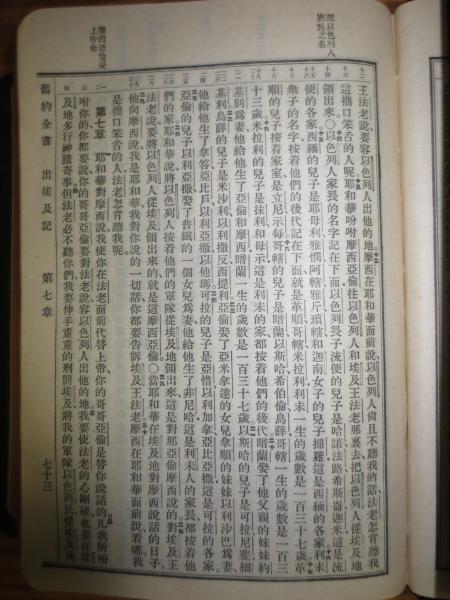 把以色列人
族長之名
摩西亞倫受
上帝命
王法老說要容以色列人出他的地摩西在耶和華面前說以色列人尙且不聽我的話法老怎肯聽我
這拙口笨舌的人呢耶和華吩咐摩西亞倫往以色列人和埃及王法老那裏去把以色列人從埃及地
領出來○以色列人家長的名字記在下面以色列長子流便的兒子是哈諾法路希斯崙迦米這是流
便的各家西緬的兒子是耶母利雅憫阿轄雅斤瑣轄和迦南女子的兒子掃羅這是西緬的各家利未
衆子的名字按着他們的後代記在下面就是革順哥轄米拉利利未一生的歲數是一百三十七歲革
順的兒子按着家室是立尼示每哥轄的兒子是暗蘭以斯哈希伯倫烏薛哥轄一生的歲數是一百三
十三歲米拉利的兒子是抹利和母示這是利未的家都按着他們的後代暗蘭娶了他父親的妹妹約
基別爲妻他給他生了亞倫和摩西暗蘭一生的歲數是一百三十七歲以斯哈的兒子是可拉尼斐細
基利烏薛的兒子是米沙利以利撒反西提利亞倫娶了亞米拿達的女兒拿順的妹妹以利沙巴爲妻
他給他生了拿答亞比戶以利亞撒以他瑪可拉的兒子是亞惜以利加拿亞比亞撒這是可拉的各家
亞倫的兒子以利亞撒娶了普鐵的一個女兒爲妻他給他生了非尼哈這是利未人的家長都按着他
們的家耶和華說將以色列人按着他們的軍隊從埃及地領出來這是對那亞倫摩西說的對埃及王
法老說要將以色列人從埃及領出來的就是這摩西亞倫○當耶和華在埃及地對摩西說話的日子
他向摩西說我是耶和華我對你說的一切話你都要告訴埃及王法老摩西在耶和華面前說看哪我
是拙口笨舌的人法老怎肯聽我呢
第七章 耶和華對摩西說我使你在法老面前代替上帝你的哥哥亞倫是替你說話的凡我所吩
咐你的你都要說你的哥哥亞倫要對法老說容以色列人出他的地我要使法老的心剛硬也要在埃
及地多行神蹟奇事但法老必不聽你們我要伸手重重的刑罰埃及將我的軍隊以色列民從埃及地
舊約全書 出埃及記 第七章 七十三